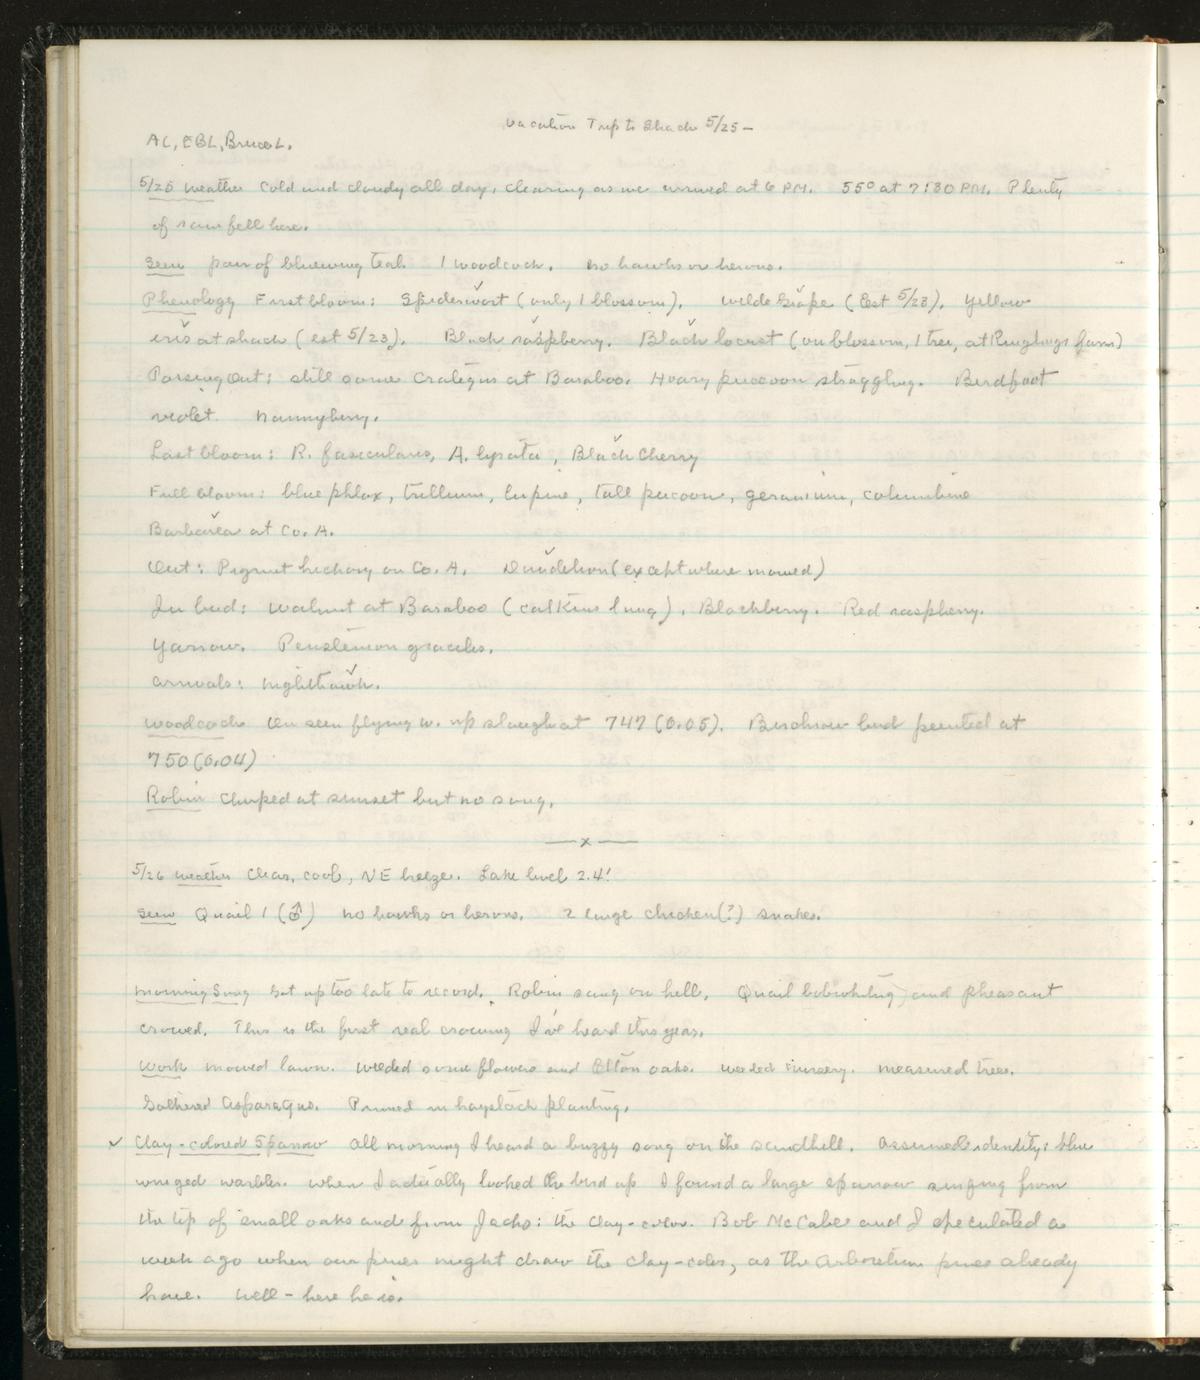 Vacation Trip to Shack 5/25 –
AL, EBL, Bruce L.
5/25 Weather Cold and cloudy all day, clearing as we arrived at 6 PM. 55° at 7:30 PM. Plenty
of rain fell here.
Seen pair of bluewing teal. 1 woodcock. No hawks or herons.
Phenology First bloom: Spiderwort (only 1 blossom). Wild Grape (Est 5/23). Yellow
iris at shack (est 5/23). Black raspberry. Black locust (on blossom, 1 tree, at Ringlings farm)
Passing Out: still some Crategus at Baraboo. Hoary puccoon straggling. Birdfoot
violet. Nannyberry.
Last bloom: R. fasicularis, A. lyrata, Black Cherry
Full bloom: blue phlox, trillium, lupine, tall puccoon, geranium, columbine
Barbarea at Co. A.
Out: Pignut hickory on Co. A. Dandelion (except where mowed)
In bud: walnut at Baraboo (Calkins lung). Blackberry. Red raspberry.
Yarrow. Penstemon gracilis.
Arrivals: nighthawk.
Woodcock One seen flying W. up slough at 747 (0.05). Birchrow bird peented at
750 (0.04)
Robin Chirped at sunset but no song.
— x —
5/26 Weather Clear, cool, NE breeze. Lake level 2.4'
Seen Quail 1 (♂) no hawks or herons. 2 large chicken(?) snakes.
Morning Song Got up too late to record. Robin sang on hill. Quail bobwhiting and pheasant
crowed. This is the first real crowing I've heard this year.
Work Mowed lawn. Weeded some flowers and Elton oaks. Weeded nursery. Measured trees.
Gathered Asparagus. Pruned in haystack planting.
✓ Clay-colored Sparrow All morning I heard a buzzy song on the sandhill. Assumed identity: blue
winged warbler. When I actually looked the bird up I found a large sparrow singing from
the tip of small oaks and from Jacks: the Clay-color. Bob McCabe and I speculated a
week ago when our pines might draw the Clay-color, as the Arboretum pines already
have. Well – here he is.